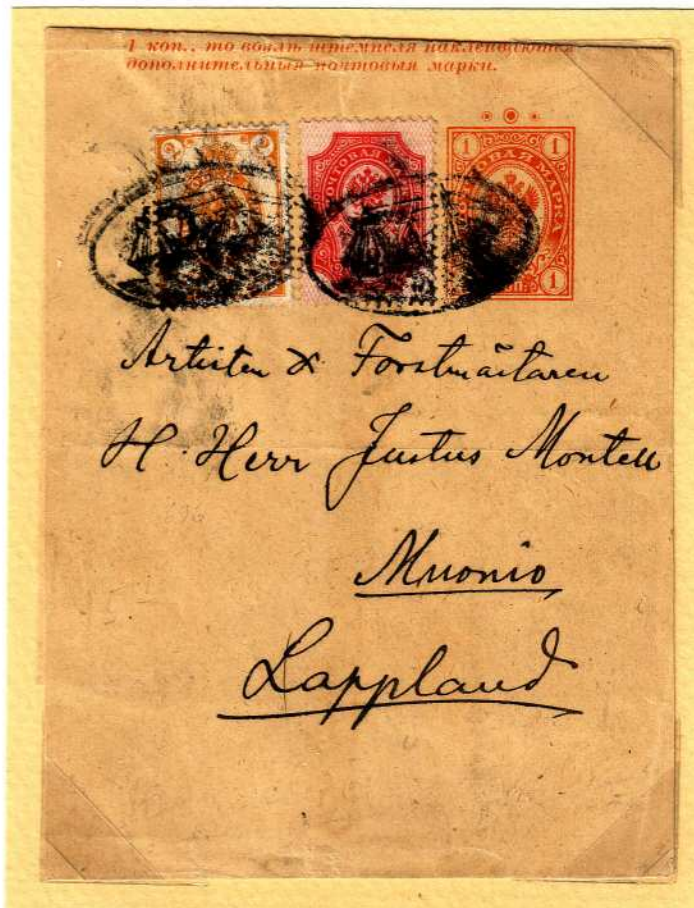 1 коп., то возлѣ штемпеля наклеиваются
дополнительныя почтовыя марки.
2 2
ПОЧТОВАЯ
1 1
ПОЧТОВАЯ МАРКА
1
Artisten & Forstmästaren
H. Herr Justus Montell
Muonio
Lappland